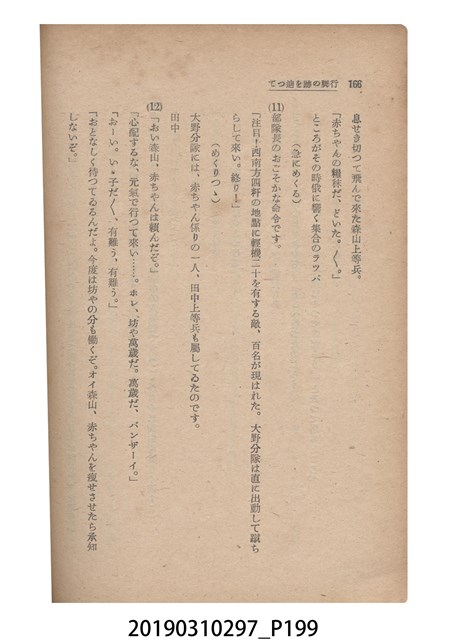 166
行脚の跡を追つて
息せき切つて飛んで來た森山上等兵。
「赤ちやんの糧秣だ、どいた。〱。」
ところがその時俄に響く集合のラッパ
(急にめくる)
(11)
部隊長のおごそかな命令です。
「注目！西南方四粁の地點に輕機二十を有する敵、百名が現はれた。大野分隊は直に出動して蹴ち
らして來い。終り―」
(めくりつゝ)
大野分隊には、赤ちやん係りの一人、田中上等兵も屬してゐたのです。
田中
(12)
「おい森山、赤ちやんは賴んだぞ。」
「心配するな、元氣で行つて來い……。ホレ、坊や萬歲だ。萬歲だ、バンザーイ。」
「おーい。いゝ子だ〱、有難う、有難う。」
「おとなしく待つてゐるんだよ。今度は坊やの分も働くぞ。オイ森山、赤ちやんを瘦せさせたら承知
しないぞ。」
20190310297_P199